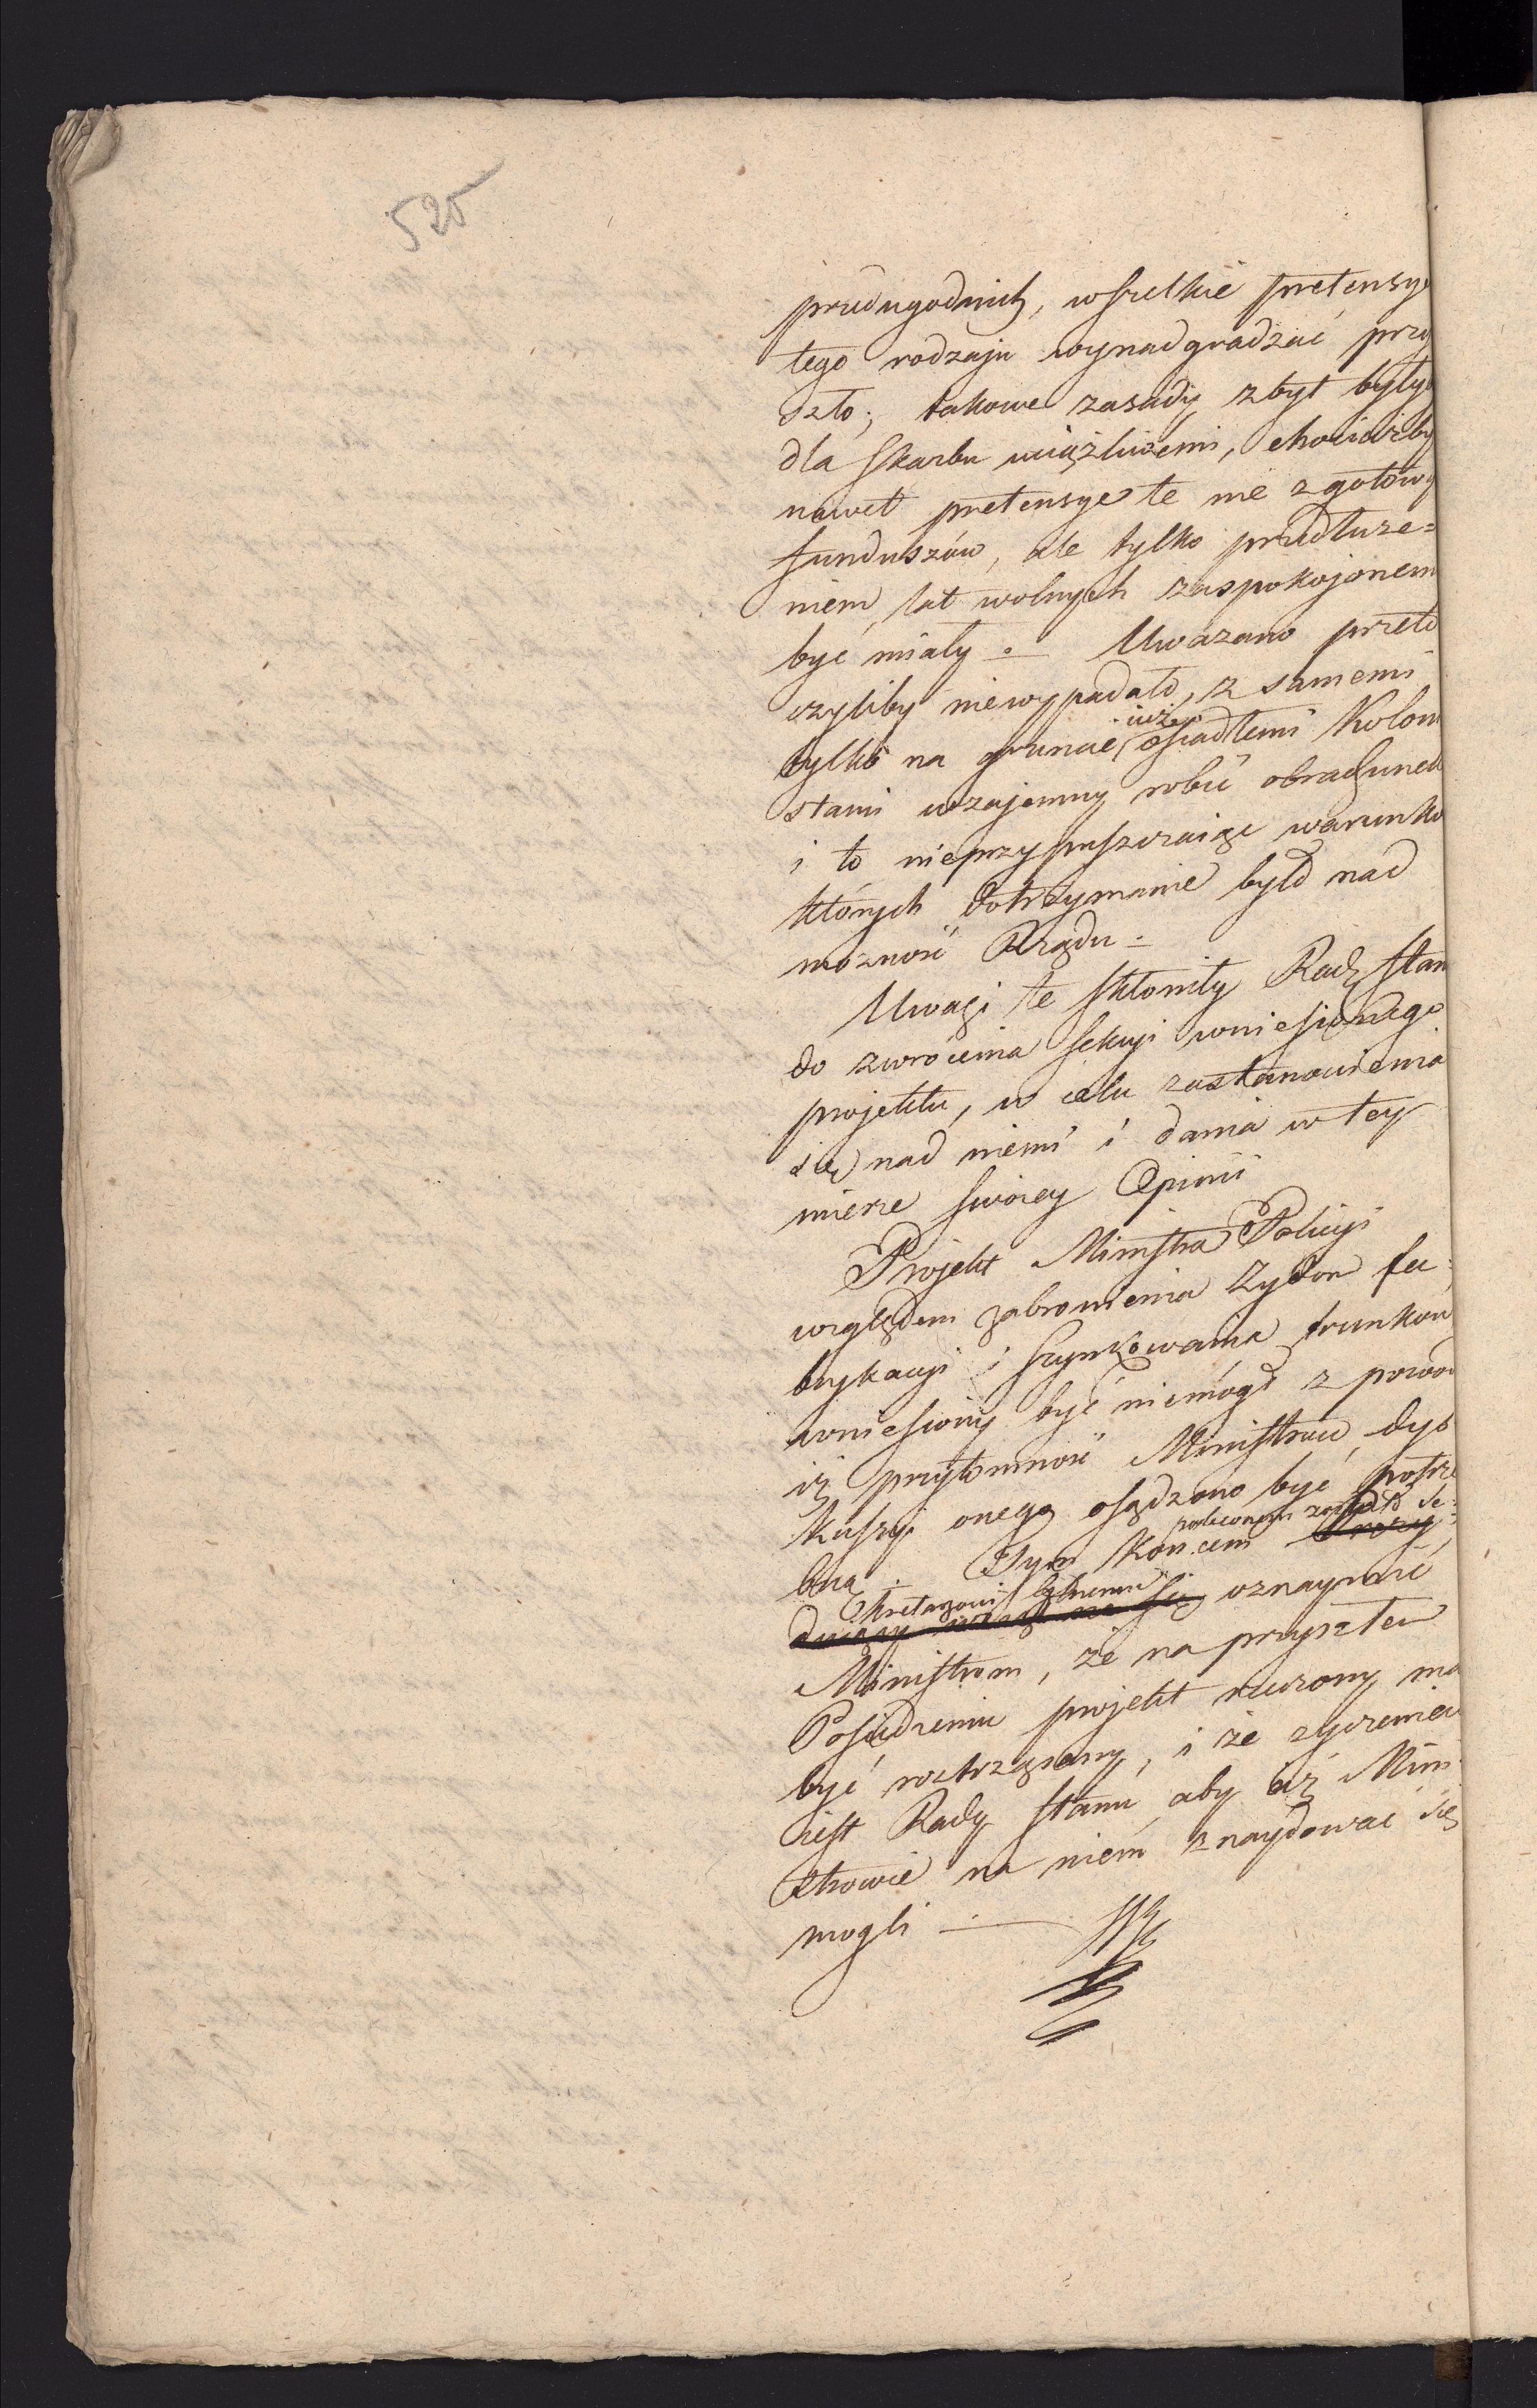 525
przedugodnich, wszelkie pretensye
tego rodzaju wynadgradzać przy
szło; takowe zasady zbyt były
dla skarbu uciążliwemi, chociażby
nawet pretensye te nie z gotowy
funduszów, ale tylko przedłuże=
niem lat wolnych zaspokojonem
być miały. — Uważano przeto
czyliby niewypadało, z samemi
tylko na gruncie iuż osiadłemi Kolon
stami wzajemny robić obrachunek
i to nieprzypuszczaiąc warunko
których dotrzymanie było nad
możność Rządu. —
Uwagi te skłoniły Radę Stan
do zwrócenia Sekcyi wniesionego
projektu, w celu zastanowienia
się nad niemi i dania w tey
mierze swoiey Opinii
Projekt Ministra Policyi
względem zabronienia Żydom fa=
brykacyi i szynkowania trunków
wniesiony być niemógł z powod
iż przytomność Ministrów, dys
kussyi onego osądzono być potrze
bną. — Tym końcem
poleconym zostało Se=
kretarzowi
oznaymić
Ministrom, że na przyszłem
Posiedzeniu projekt rzeczony ma
być roztrząsany, i że życzeniem
iest Rady Stanu aby ciż Mini
strowie na niem znaydować się
mogli —